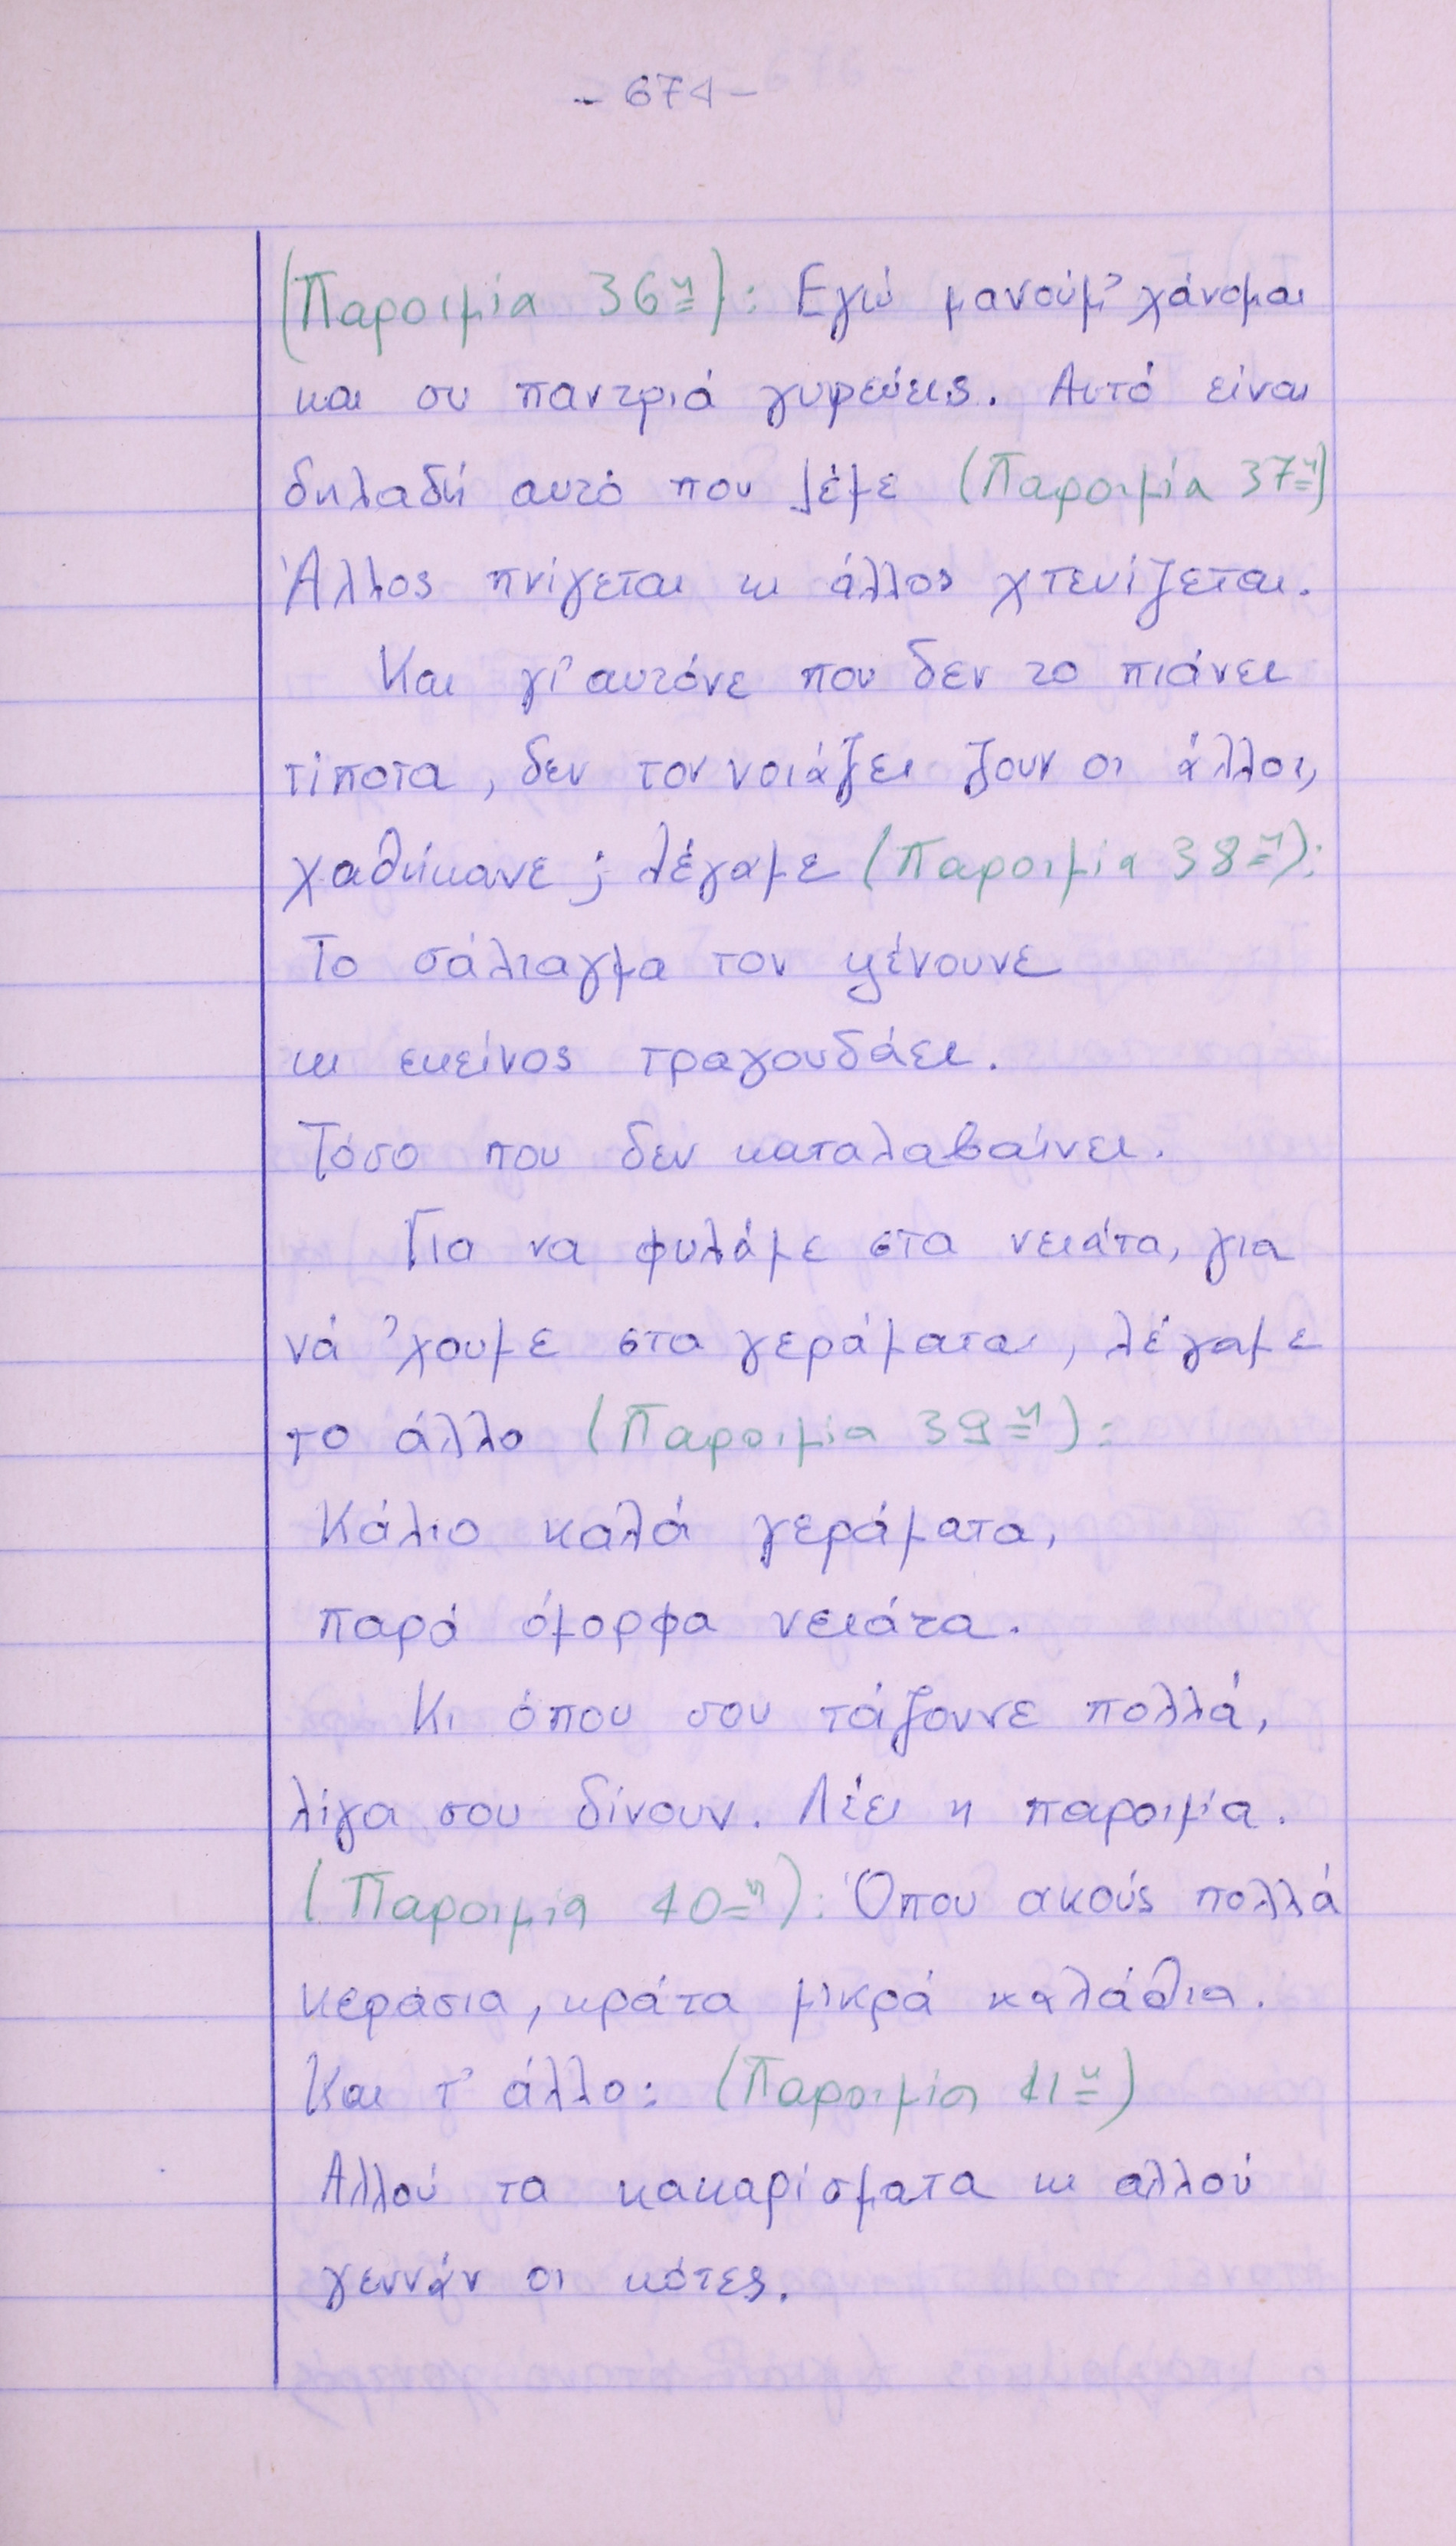 - 674 -
(Παροιμία 36η): Εγώ μανούμ' χάνομαι
και συ παντριά γυρεύεις. Αυτό είναι
δηλαδή αυτό που λέμε (Παροιμία 37η)
Άλλος πνίγεται κι άλλος χτενίζεται.
Και γι' αυτόνε που δεν το πιάνει
τίποτα, δεν τον νοιάζει ζουν οι άλλοι,
χαθήκανε; λέγαμε (Παροιμία 38η):
Το σάλιαγμα τον ψένουνε
κι εκείνος τραγουδάει.
Τόσο που δεν καταλαβαίνει.
Για να φυλάμε στα νειάτα, για
νά 'χουμε στα γεράματα, λέγαμε
το άλλο (Παροιμία 39η):
Κάλιο καλά γεράματα,
παρά όμορφα νειάτα.
Κι όπου σου τάζουνε πολλά,
λίγα σου δίνουν. Λέει η παροιμία.
(Παροιμία 40η): Όπου ακούς πολλά
κεράσια, κράτα μικρά καλάθια.
Και τ' άλλο: (Παροιμία 41η)
Αλλού τα κακαρίσματα κι αλλού
γεννάν οι κότες.